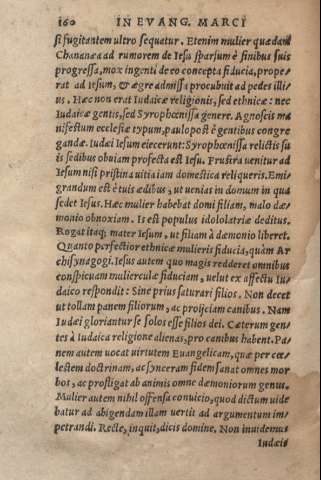 160 IN EVANG. MARCI
si fugitantem ultro sequatur. Etenim mulier quædam
Chananæa ad rumorem de Iesu sparsum è finibus suis
progressa, mox ingenti de eo concepta fiducia, prope,
rat ad Iesum, & ægre admissa procubuit ad pedes illi,
us. Hæc non erat Iudaicæ religionis, sed ethnicæ: nec
Iudaicæ gentis, sed Syrophœnissa genere. Agnoscis ma
nifestum ecclesiæ typum, paulo post è gentibus congre
gandæ. Iudæi Iesum eiecerunt: Syrophœnissa relictis su
is sedibus obuiam profecta est Iesu. Frustra uenitur ad
Iesum nisi pristina uitia iam domestica reliqueris. Emi
grandum est è tuis ædibus, ut uenias in domum in qua
sedet Iesus. Hæc mulier habebat domi filiam, malo dæ,
monio obnoxiam. Is est populus idololatriæ deditus.
Rogat itaq; mater Iesum, ut filiam à dæmonio liberet.
Quanto perfectior ethnicæ mulieris fiducia, quàm Ar
chisynagogi. Iesus autem quo magis redderet omnibus
conspicuam mulierculæ fiduciam, uelut ex affectu Iu,
daico respondit: Sine prius saturari filios. Non decet
ut tollam panem filiorum, ac proijciam canibus. Nam
Iudæi gloriantur se solos esse filios dei. Cæterum gen,
tes à Iudaica religione alienas, pro canibus habent. Pa,
nem autem uocat uirtutem Euangelicam, quæ per cœ,
lestem doctrinam, ac synceram fidem sanat omnes mor
bos, ac profligat ab animis omne dæmoniorum genus.
Mulier autem nihil offensa conuicio, quod dictum uide
batur ad abigendam illam uertit ad argumentum im,
petrandi. Recte, inquit, dicis domine. Non inuidemus
Iudæis